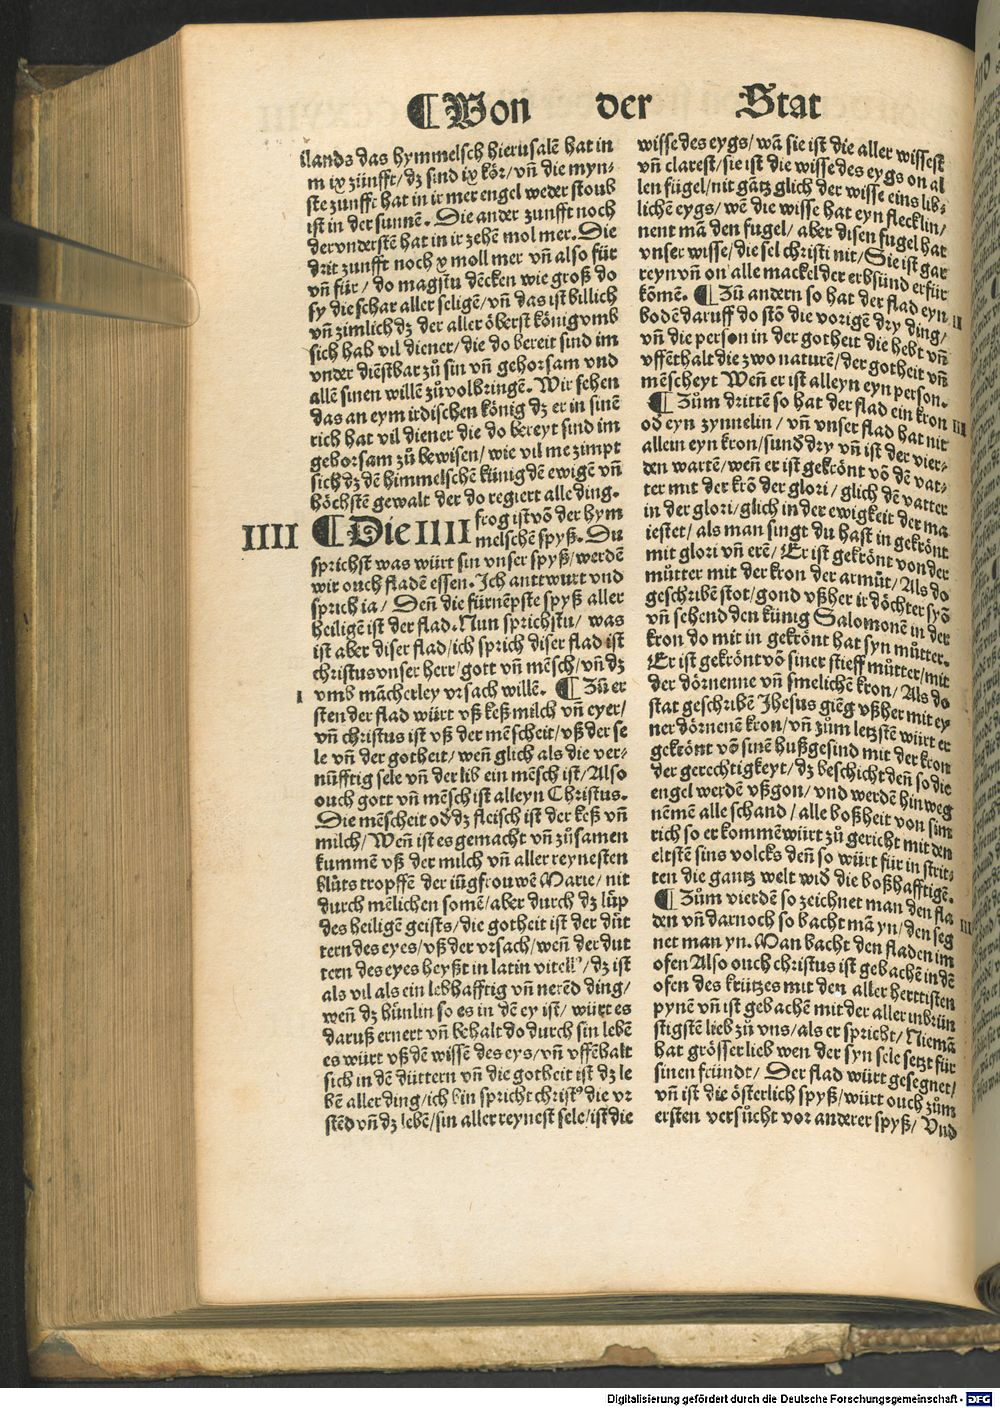 ¶Von der Stat
llands das hymmelsch hierusalē hat in
m ix zünfft/dz sind ix kör/vñ die myn⸗
ste zunfft hat in ir mer engel weder stoub
ist in der sunnē. Die ander zunfft noch
dervnderstē hat in ir zehē mol mer. Die
drit zunfft noch x moll mer vñ also für
vñ für/do magstu dēcken wie groß do
sy die schar aller seligē/vñ das ist billich
vñ zimlich dz der aller öberst königvmb
sich hab vil diener/die do bereit sind im
vnder diēstbar zů sin vñ gehorsam vnd
allē sinen willē zůvolbringē. Wir sehen
das an eym irdischen könig dz er in sinē
rich hat vil diener die do bereyt sind im
gehorsam zů bewisen/wie vil me zimpt
sich dz dē himmelschē künig dē ewigē vñ
höchstē gewalt der do regiert alle ding.
IIII ¶Die IIII frog ist vō der hym
melschē spyß. Du
sprichst was würt sin vnser spyß/werdē
wir ouch fladē essen. Ich anttwurt vnd
sprich ia/ Deñ die fürnēpste spyß aller
heiligē ist der flad. Nun sprichstu/ was
ist aber diser flad/ich sprich diser flad ist
christus vnser herr/gott vñ mēsch/vñ dz
I vmb mācherley vrsach willē. ¶Zū er
sten der flad würt vß keß milch vñ eyer/
vñ christus ist vß der mēscheit/vß der se
le vñ der gotheit/weñ glich als die ver⸗
nüfftig sele vñ der lib ein mēsch ist/Also
ouch gott vñ mēsch ist alleyn Christus.
Die mēscheit od dz fleisch ist der keß vñ
milch/Weñ ist es gemacht vñ zůsamen
kummē vß der milch vñ aller reynesten
blůts tropffē der iūgfrouwē Marie/nit
durch mēlichen somē/aber durch dz lüp
des heiligē geists/die gotheit ist der důt
tern des eyes/vß der vrsach/weñ der dut
tern des eyes heyßt in latin vitellꝰ/dz ist
als vil als ein lebhafftig vñ nerēd ding/
weñ dz hůnlin so es in dē ey ist/würt es
daruß ernert vñ behalt do durch sin lebē
es würt vß dē wissē des eys/vñ vffēhalt
sich in dē düttern vñ die gotheit ist dz le
bē aller ding/ich bin spricht christꝰ die vr
stēd vñ dz lebē/sin aller reynest sele/ist die
wisse des eygs/wā sie ist die aller wissest
vñ clarest/sie ist die wisse des eygs on al
len fügel/nit gātz glich der wisse eins lib⸗
lichē eygs/wē die wisse hat eyn flecklin/
nent mā den fugel/aber disen fugel hat
vnser wisse/die sel christi nit/Sie ist gar
reyn vñ on alle mackel der erbsünd erfür
kōmē. ¶Zů andern so hat der flad eyn
bodē daruff do stō die vorigē dry ding/ II
vñ die person in der gotheit die hebt vñ
vffēthalt die zwo naturē/der gotheit vñ
mēscheyt Weñ er ist alleyn eyn person.
¶Zům drittē so hat der flad ein kron
od eyn zynnelin/vñ vnser flad hat nit III
allein eyn kron/sund dry vñ ist der vier⸗
den wartē/weñ er ist gekrönt vō dē vat⸗
ter mit der krō der glori/glich dē vatter
in der glori/glich in der ewigkeit der ma
iestet/als man singt du hast in gekrönt
mit glori vñ erē/Er ist gekrönt von der
můtter mit der kron der armůt/Als do
geschribē stot/gond vßher ir döchter syō
vñ sehend den künig Salomonē in der
kron do mit in gekrönt hat syn můtter.
Er ist gekrönt vō siner stieff můtter/mit
der dörnenne vñ smelichē kron/Als do
stat geschribē Jhesus giēg vßher mit ey
ner dörnenē kron/vñ zům letzstē würt er
gekrönt vō sinē hußgesind mit der kron
der gerechtigkeyt/dz beschicht deñ so die
engel werdē vßgon/vnd werdē hinweg
nēmē alle schand/alle boßheit von sim
rich so er kommē würt zů gericht mit den
eltstē sins volcks deñ so würt für in strit⸗
ten die gantz welt wid die boßhafftigē.
¶Zům vierdē so zeichnet man den fla
den vñ darnoch so bacht mā yn/den seg III
net man yn. Man bacht den fladen im
ofen Also ouch christus ist gebachē in dē
ofen des krützes mit den aller herttisten
pynē vñ ist gebachē mit der aller inbrün
stigstē lieb zů vns/als er spricht/Niemā
hat grösser lieb wen der syn sele setzt für
sinen fründt/ Der flad würt gesegnet/
vñ ist die österlich spyß/würt ouch zům
ersten versůcht vor anderer spyß/ Vnd
Digitalisierung gefördert durch die Deutsche Forschungsgemeinschaft - DFG